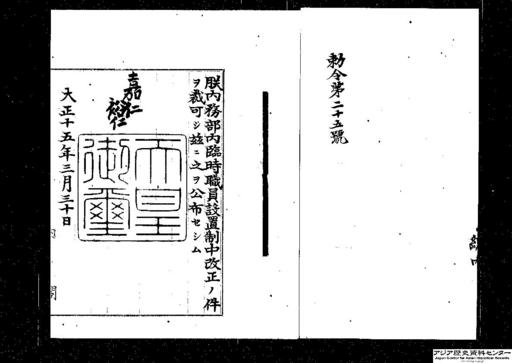 勅令第二十五號
朕內務部內臨時職員設置制中改正ノ件
ヲ裁可シ茲ニ之ヲ公布セシム
嘉仁
裕仁
天皇
御璽
大正十五年三月三十日
內閣
アジア歴史資料センター
Japan Center for Asian Historical Records